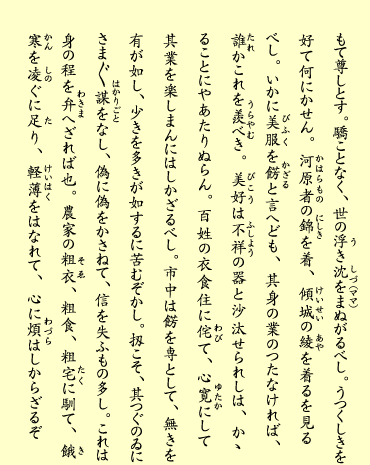 もて尊しとす。驕ことなく、世の浮き沈をまぬがるべし。うつくしきを
好て何にかせん。河原者の錦を着、傾城の綾を着るを見る
べし。いかに美服を餝と言へども、其身の業のつたなければ、
誰かこれを羨べき。美好は不祥の器と沙汰せられしは、かゝ
ることにやあたりぬらん。百姓の衣食住に侘て、心寛にして
其業を楽しまんにはしかざるべし。市中は餝を専として、無きを
有が如し、少きを多きが如するに苦むぞかし。扨こそ、其つぐのゐに
さま〴〵謀をなし、偽に偽をかさねて、信を失ふもの多し。これは
身の程を弁へざれば也。農家の粗衣、粗食、粗宅に馴て、餓
寒を凌ぐに足り、軽薄をはなれて、心に煩はしからざるぞ